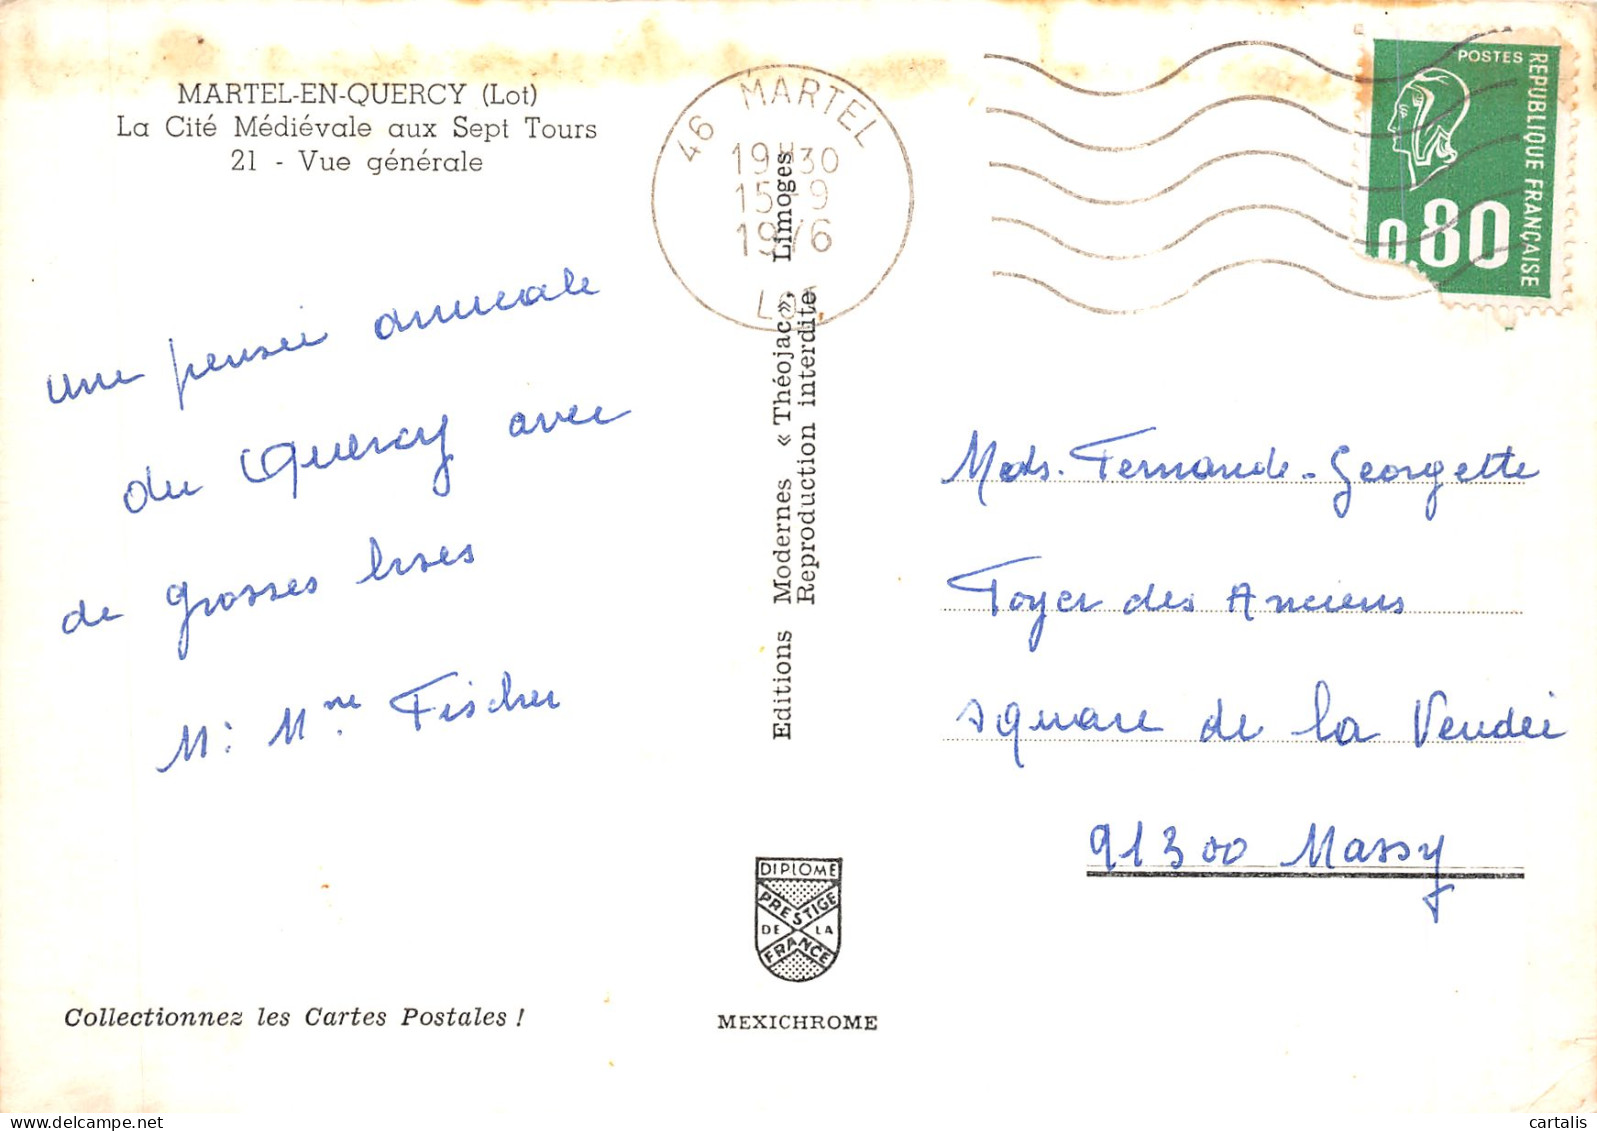 MARTEL-EN-QUERCY (Lot)
La Cité Médiévale aux Sept Tours
21 - Vue générale
46 MARTEL
19H30
15-9
1976
LOT
POSTES
REPUBLIQUE FRANÇAISE
0,80
une pensée amicale
du Quercy avec
de grosses bises
M. Mme Fischer
Editions Modernes « Théojac », Limoges
Reproduction interdite
Fernande-Georgette
Foyer des Anciens
square de la Vendée
91300 Massy
DIPLOME
PRESTIGE
DE LA
FRANCE
Collectionnez les Cartes Postales !
MEXICHROME
cartalis